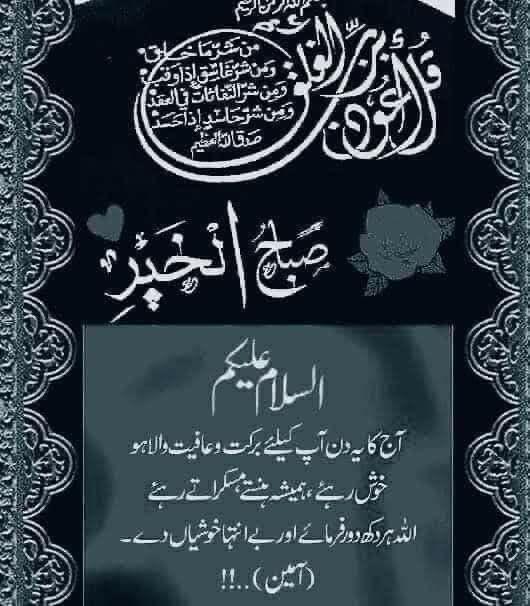 بسم الله الرحمن الرحيم
قُلْ أَعُوذُ بِرَبِّ الْفَلَقِ
مِن شَرِّ مَا خَلَقَ
وَمِن شَرِّ غَاسِقٍ إِذَا وَقَبَ
وَمِن شَرِّ النَّفَّاثَاتِ فِي الْعُقَدِ
وَمِن شَرِّ حَاسِدٍ إِذَا حَسَدَ
صدق الله العظيم
صباح الخير
السلام علیکم
آج کا یہ دن آپ کیلئے برکت و عافیت والا ہو
خوش رہئے، ہمیشہ ہنستے مسکراتے رہئے
اللہ ہر دکھ دور فرمائے اور بے انتہا خوشیاں دے۔
(آمین)..!!